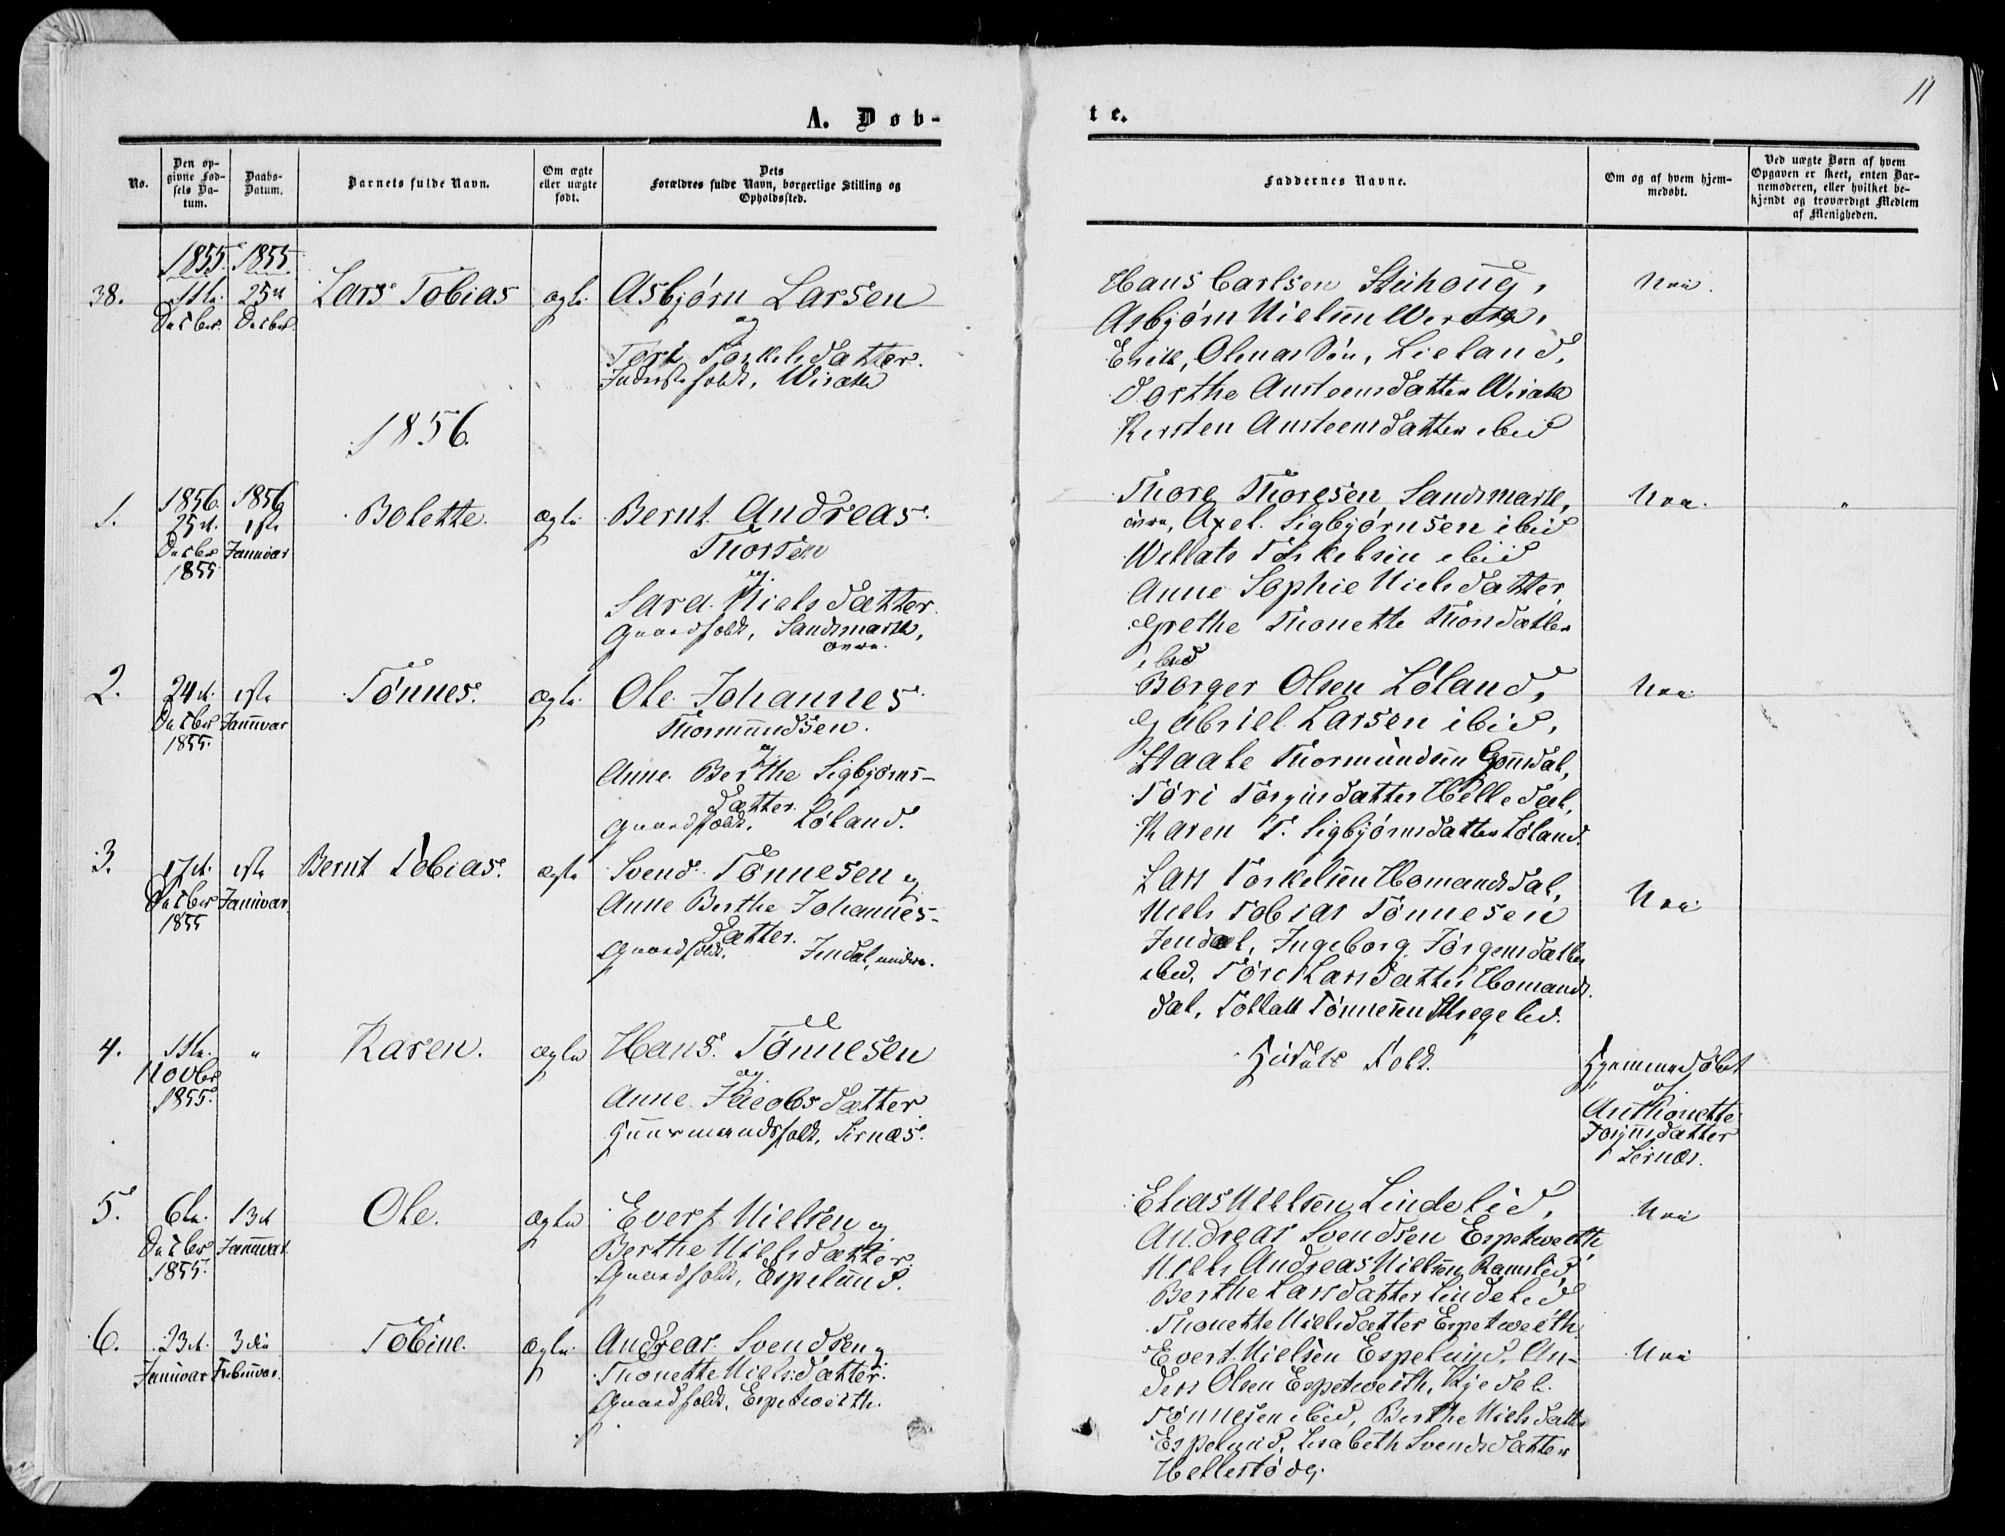 11
A. Døb-
te.
No.
Den op-
givne Fød-
sels Da-
tum.
Daabs-
Datum.
Barnets fulde Navn.
Om ægte
eller uægte
født.
Dets
Forældres fulde Navn, borgerlige Stilling og
Opholdssted.
Faddernes Navne.
Om og af hvem hjem-
medøbt.
Ved uægte Børn af hvem
Opgaven er skeet, enten Bar-
nemoderen, eller hvilket be-
kjendt og troværdigt Medlem
af Menigheden.
38.
1855.
Decber
1855.
25de
Decber.
Lars Tobias
ægte
Asbjørn Larsen
og
Torkelsdatter.
Hans Carlsen
Asbjørn Nielsen
Erik, Lieland,
Dorthe Austeensdatter
Kersten Austeensdatter ibid
Nei.
1856.
1.
1856.
25de
Decber
1855
1856
1ste
Januar
Bolette.
ægte
Bernt Andreas
Thorsen
og
Sara Nielsdatter.
Gaardfolk, Sandsmark,
øvre.
Thore Thoresen Sandsmark,
øvre, Axel Sigbjørnsen ibid
Torkelsen ibid
Anne Sophie Nielsdatter,
Grethe Thonette Thorsdatter
ibid
Nei.
"
2.
24de
Decber
1855.
1ste
Januar
Tønnes.
ægte
Ole Johannes
Thormundsen.
og
Anne Berthe Sigbjørns-
datter.
Gaardfolk. Løland.
Børger Olsen Løland,
Gabriel Larsen ibid,
Staale Thormundsen
Tori Helledal,
Karen T. Sigbjørnsdatter Løland.
Nei
3.
17de
Decber
1855
1ste
Januar.
Bernt Tobias.
ægte
Svend Tønnesen og
Anne Berthe Johannes-
datter.
Gaardfolk. Jendal, nedre.
Lars Torkelsen Homandsdal,
Niels Tobias Tønnesen
Jendal, Ingeborg Jørgensdatter
ibid, Larsdatter Homands-
dal, Tønnesen
Nei
4.
Novber
1855.
"
Karen.
ægte
Hans Tønnesen
og
Anne Jacobsdatter
Huusmandsfolk, Sirnæs.
Folk.
Hjemmedøbt
af
Anthonette
Sirnæs.
5.
6te
Decber
1855.
13de
Januar
Ole.
ægte
Evert Nielsen og
Berthe Nielsdatter.
Gaardfolk, Espelund.
Elias Nielsen Lindelid,
Andreas Svendsen Espetweith
Niels Andreas Nielsen Ramslid,
Berthe Larsdatter Lindelid
Thonette Nielsdatter Espetweith
Nei
6.
23de
Januar
3die
Februar.
Tobine.
ægte
Andreas Svendsen og
Thonette Nielsdatter.
Gaardfolk, Espetweith.
Evert Nielsen Espelund, An-
ders Olsen Espetweith, Kjedel
Tønnesen ibid, Berthe Nielsdatter
Espelund, Lisabeth Svendsdatter
Nei